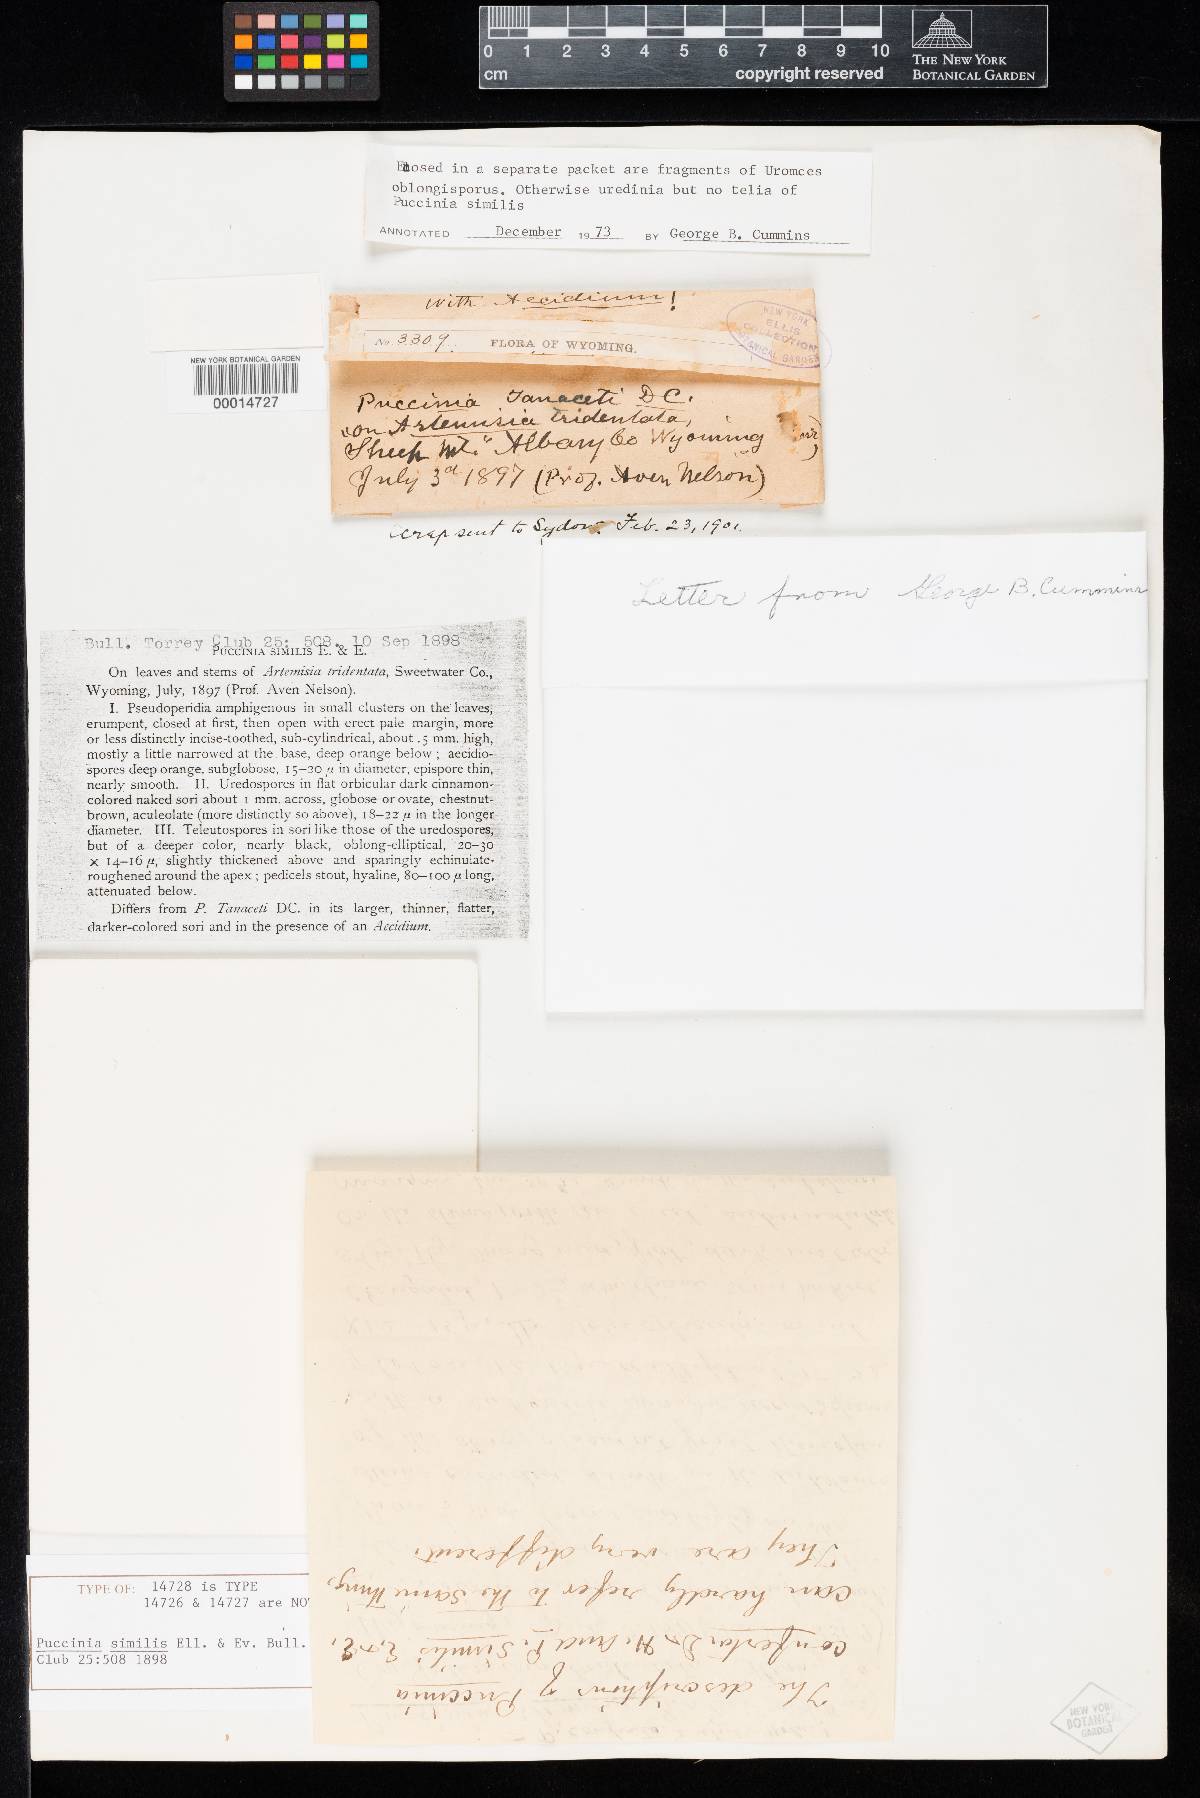 0 1 2 3 4 5 6 7 8 9 10
cm
copyright reserved
THE NEW YORK
BOTANICAL GARDEN
Enclosed in a separate packet are fragments of Uromces
oblongisporus. Otherwise uredinia but no telia of
Puccinia similis
ANNOTATED December 1973 BY George B. Cummins
with Aecidium!
No. 3309. FLORA OF WYOMING.
NEW YORK
ELLIS
COLLECTION
BOTANICAL GARDEN
NEW YORK BOTANICAL GARDEN
00014727
Puccinia Tanaceti DC.
on Artemisia tridentata,
Sheep Mt. Albany Co Wyoming
July 3d 1897 (Prof. Aven Nelson)
scrap sent to Sydow Feb. 23, 1901.
Letter from George B. Cummins
Bull. Torrey Club 25: 508. 10 Sep 1898
PUCCINIA SIMILIS E. & E.
On leaves and stems of Artemisia tridentata, Sweetwater Co.,
Wyoming, July, 1897 (Prof. Aven Nelson).
I. Pseudoperidia amphigenous in small clusters on the leaves,
erumpent, closed at first, then open with erect pale margin, more
or less distinctly incise-toothed, sub-cylindrical, about .5 mm. high,
mostly a little narrowed at the base, deep orange below; aecidio-
spores deep orange, subglobose, 15–20 µ in diameter, epispore thin,
nearly smooth. II. Uredospores in flat orbicular dark cinnamon-
colored naked sori about 1 mm. across, globose or ovate, chestnut-
brown, aculeolate (more distinctly so above), 18–22 µ in the longer
diameter. III. Teleutospores in sori like those of the uredospores,
but of a deeper color, nearly black, oblong-elliptical, 20–30
× 14–16 µ, slightly thickened above and sparingly echinulate-
roughened around the apex; pedicels stout, hyaline, 80–100 µ long,
attenuated below.
Differs from P. Tanaceti DC. in its larger, thinner, flatter,
darker-colored sori and in the presence of an Aecidium.
The descriptions of Puccinia
conferta D. & H. and P. Similis E. & E.
can hardly refer to the same thing.
They are very different.
TYPE OF: 14728 is TYPE
14726 & 14727 are NOT
Puccinia similis Ell. & Ev. Bull.
Club 25:508 1898
NEW YORK
BOTANICAL
GARDEN